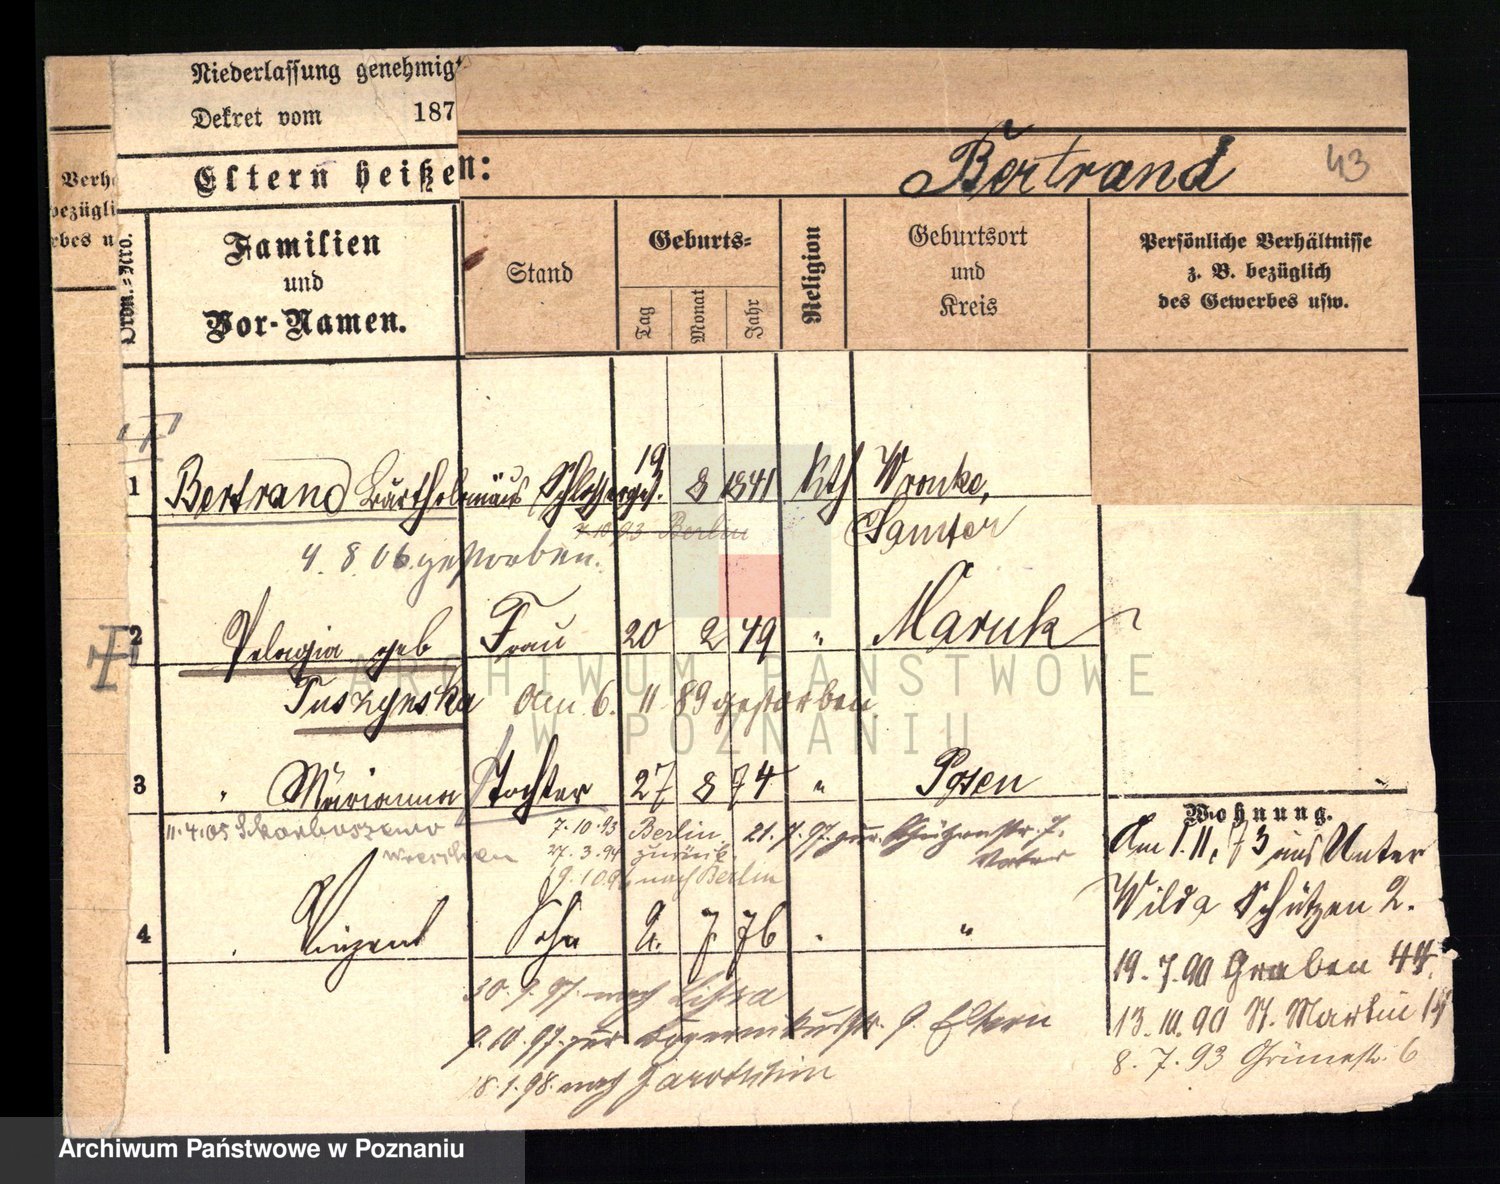 Niederlassung genehmigt
Dekret vom 187
Eltern heißen:
Bertrand 43
Verh
bezügli
rbes u
Ordn.-Nro.
Familien
und
Vor-Namen.
Stand
Geburts-
Tag
Monat
Jahr
Religion
Geburtsort
und
Kreis
Persönliche Verhältnisse
z. B. bezüglich
des Gewerbes usw.
1 Bertrand Bartholomäus Schlosserges. 19 8 1841 Kth Wronke,
Samter
7.10.93 Berlin
4. 8 06 gestorben.
2 Pelagia geb Frau 20 2 49 " Maruk
Tuszynska am 6. 11 89 gestorben
3 " Marianna Tochter 27 8 74 " Posen
11.4.05 Skarboszewo
Wreschen
7.10.93 Berlin
27.3.94 zurück
19.10.94 nach Berlin
21.7.97. zur. Schützenstr. 7.
Vater
4 Vinzent Sohn 2. 7 76 " "
30.9.97. nach Lissa
9.10.97. zur Eltern
18.1.98. nach Jarotschin
Wohnung.
Am 1.11.73 aus Unter
Wilda Schützen 2.
19.7.90 Graben 44.
13.10.90 St. Martin
8.7.93 Grünestr. 6
ARCHIWUM PAŃSTWOWE
W POZNANIU
Archiwum Państwowe w Poznaniu